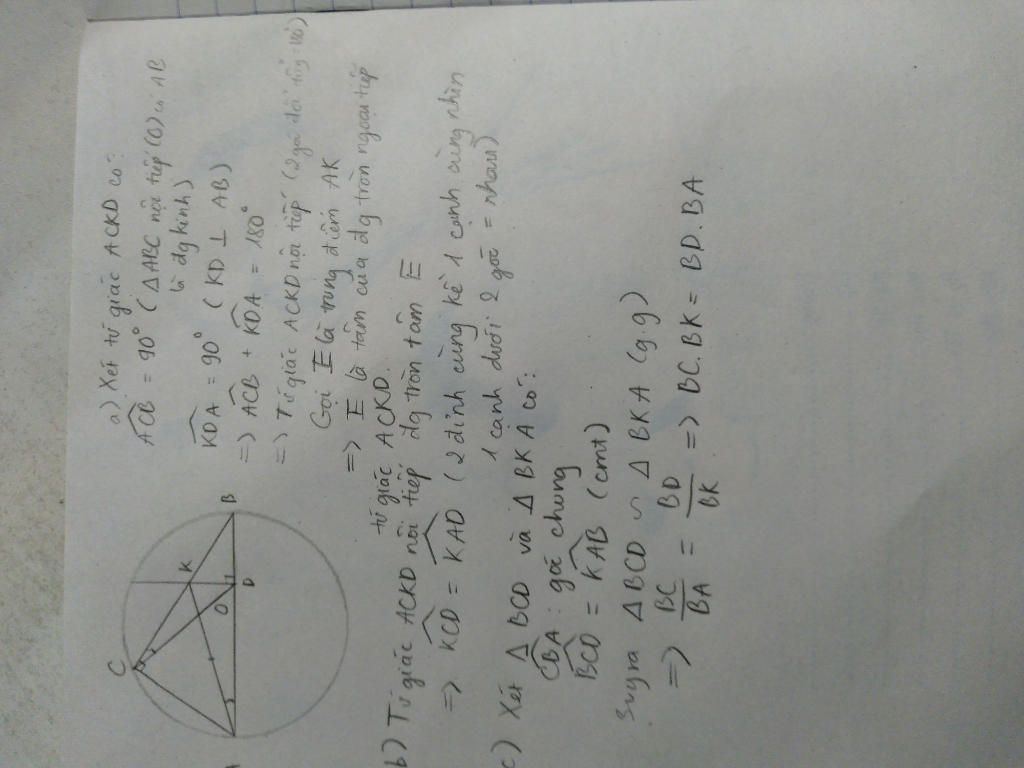 C
K
O
D
B
a) Xét tứ giác ACKD có:
ACB = 90° (ΔABC nội tiếp (O) có AB
là đg kính)
KDA = 90° (KD ⊥ AB)
=> ACB + KDA = 180°
=> Tứ giác ACKD nội tiếp (2 góc đối tổng 180°)
Gọi E là trung điểm AK
=> E là tâm của đg tròn ngoại tiếp
tứ giác ACKD.
b) Tứ giác ACKD nội tiếp đg tròn tâm E
=> KCD = KAD (2 đỉnh cùng kề 1 cạnh cùng nhìn
1 cạnh dưới 2 góc = nhau)
c) Xét Δ BCD và Δ BKA có:
CBA : góc chung
BCD = KAB (cmt)
Suy ra Δ BCD ∽ Δ BKA (g.g)
=> BC/BA = BD/BK => BC.BK = BD.BA